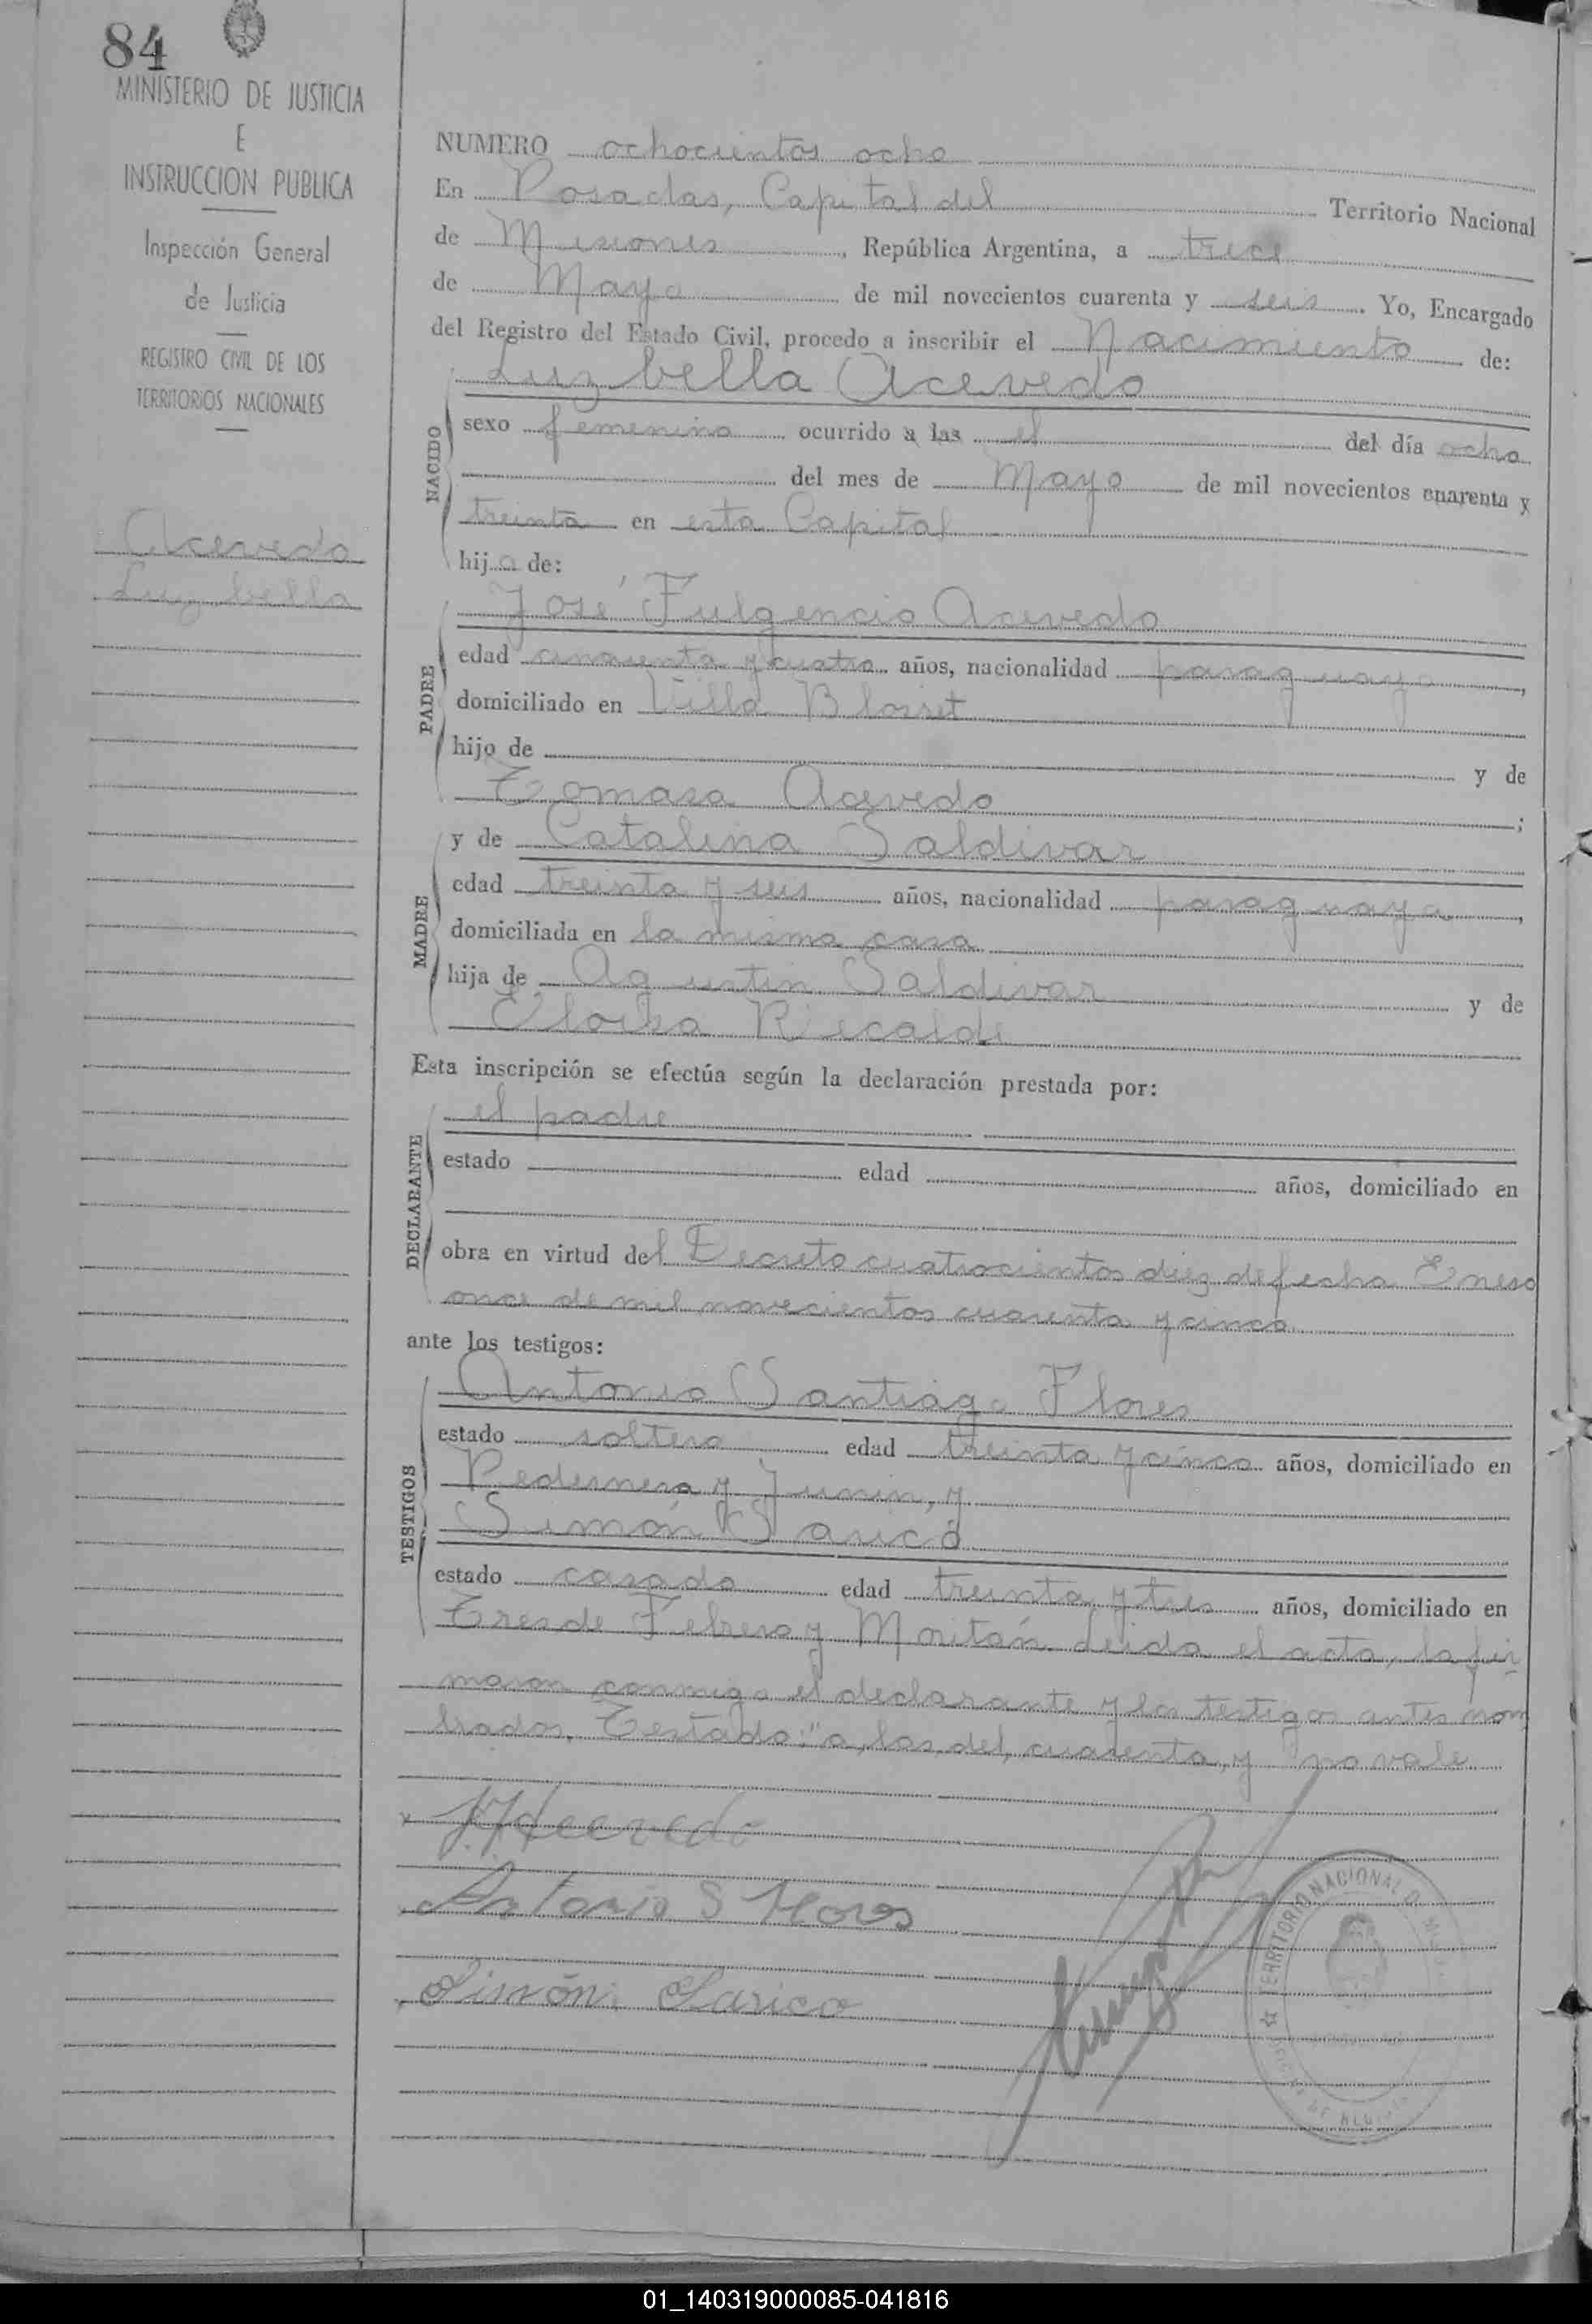 84
MINISTERIO DE JUSTICIA
E
INSTRUCCION PUBLICA
Inspección General
de Justicia
REGISTRO CIVIL DE LOS
TERRITORIOS NACIONALES
Acevedo
Luz bella
NUMERO ochocientos ocho
En Posadas, Capital del Territorio Nacional
de Misiones, República Argentina, a trece
de Mayo de mil novecientos cuarenta y seis. Yo, Encargado
del Registro del Estado Civil, procedo a inscribir el Nacimiento de:
Luz bella Acevedo
NACIDO
sexo femenino ocurrido a las el del día ocho
del mes de Mayo de mil novecientos cuarenta y
treinta en esta Capital
hija de:
José Fulgencio Acevedo
PADRE
edad cincuenta y cuatro años, nacionalidad paraguayo,
domiciliado en Villa Blosset
hijo de y de
Tomasa Acevedo;
MADRE
y de Catalina Saldivar
edad treinta y seis años, nacionalidad paraguaya,
domiciliada en la misma casa
hija de Agustin Saldivar y de
Eloisa Recalde
Esta inscripción se efectúa según la declaración prestada por:
DECLARANTE
el padre
estado edad años, domiciliado en
obra en virtud del Decreto cuatrocientos diez de fecha Enero
once de mil novecientos cuarenta y cinco
ante los testigos:
TESTIGOS
Antonio Santiago Flores
estado soltero edad treinta y cinco años, domiciliado en
Pedernera y Junin, y
Simón Saricó
estado casado edad treinta y tres años, domiciliado en
Tres de Febrero y Moritán. Leida el acta, la fir-
maron conmigo el declarante y los testigos antes nom
brados. Testado: "a, las, del, cuarenta, y" no vale
J. F. Acevedo
Antonio S Flores
Simón Sarico
TERRITORIO NACIONAL D
01_140319000085-041816